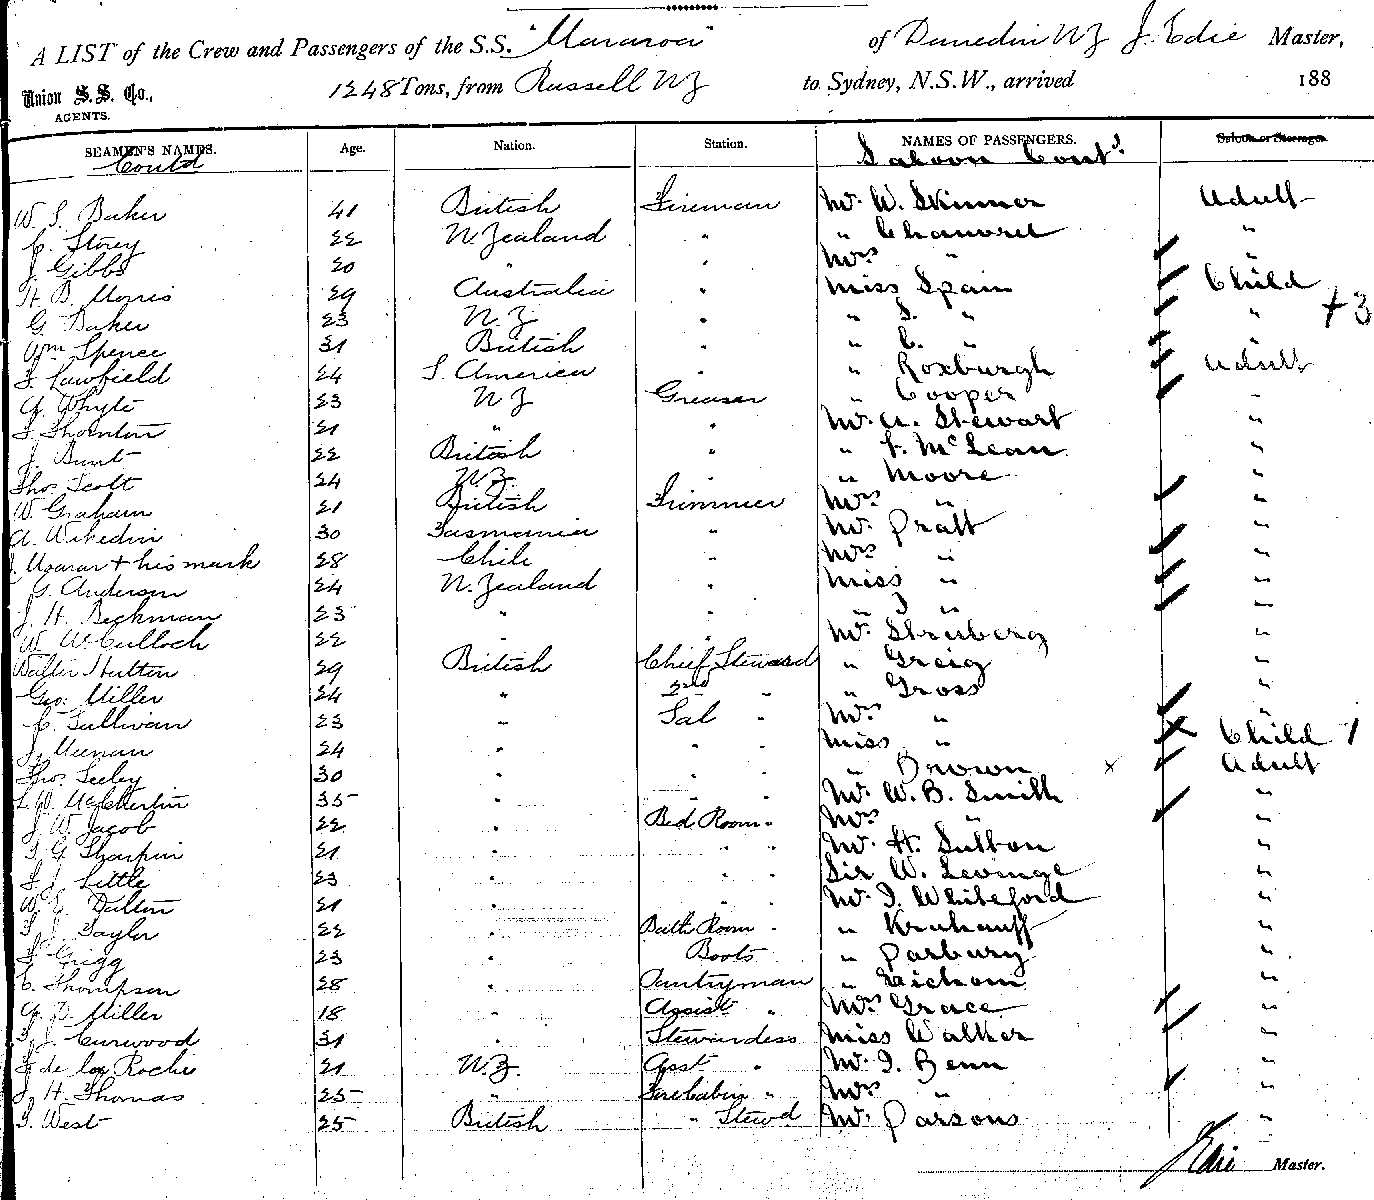 A LIST of the Crew and Passengers of the S.S. "Mararoa" of Dunedin NZ J. Edie Master,
Union S. S. Co., AGENTS. 1248 Tons, from Russell NZ to Sydney, N.S.W., arrived 188
SEAMEN'S NAMES. Age. Nation. Station. NAMES OF PASSENGERS. Saloon or Steerage
Contd Saloon Contd
W. S. Baker 41 British Fireman Mr. W. Skinner Adult
C. Storey 22 N. Zealand " " Chauvrel "
J. Gibbs 20 " " Mrs " "
H. B. Morris 29 Australia " Miss Spain Child
G. Baker 23 N.Z. " " S. " " +3
Wm Spence 31 British " " C. " "
F. Lawfield 24 S. America " " Roxburgh Adult
A. Whyte 23 NZ Greaser " Cooper "
F. Thornton 21 " " Mr. A. Stewart "
J. Bunt 22 British " " F. McLean "
Thos. Scott 24 N.Z. " " Moore "
W. Graham 21 British Trimmer Mrs " "
A. 30 Tasmania " Mr. Pratt "
+ his mark 28 Chili " Mrs " "
G. Anderson 24 N. Zealand " Miss " "
J. H. Beckman 23 " " " J " "
W. McCulloch 22 " " Mr. Struberg "
Walter Hutton 29 British Chief Steward " Greig "
Geo. Miller 24 " 2nd " " Gross "
C. Sullivan 23 " Sal " Mrs " "
J. 24 " " " Miss " Child 1
Thos. Seeley 30 " " " " Brown x Adult
W. 35 " " " Mr. W. B. Smith "
J. W. Jacob 22 " Bed Room " Mrs " "
21 " " " Mr. H. Sutton "
F. J. Little 23 " " " Sir W. Levinge "
W. E. Dalton 21 " " " Mr. J. Whiteford "
Taylor 22 " Bath Room " " "
Grigg 23 " Boots " Parbury "
C. Thompson 28 " Pantryman " "
Miller 18 " Assist " Mrs Grace "
Curwood 31 " Stewardess Miss Walker "
de la Roche 21 N.Z. Asst " Mr. J. Benn "
J. H. Thomas 25 " Forecabin " Mrs " "
F. West 25 British " Stewd Mr. Parsons "
J Edie Master.